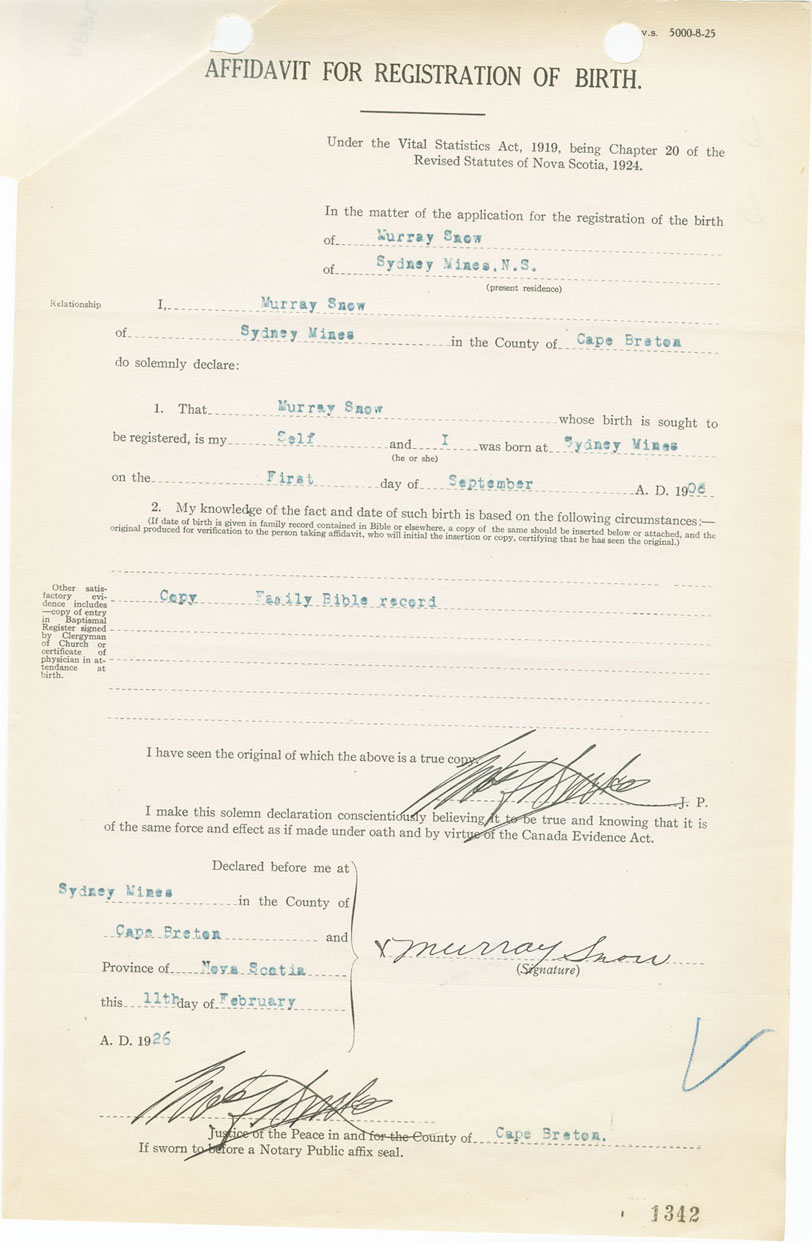 v.s. 5000-8-25
AFFIDAVIT FOR REGISTRATION OF BIRTH.
Under the Vital Statistics Act, 1919, being Chapter 20 of the
Revised Statutes of Nova Scotia, 1924.
In the matter of the application for the registration of the birth
of Murray Snow
of Sydney Mines, N.S.
(present residence)
Relationship I, Murray Snow
of Sydney Mines in the County of Cape Breton
do solemnly declare:
1. That Murray Snow whose birth is sought to
be registered, is my Self and I was born at Sydney Mines
(he or she)
on the First day of September A. D. 1906
2. My knowledge of the fact and date of such birth is based on the following circumstances:—
(If date of birth is given in family record contained in Bible or elsewhere, a copy of the same should be inserted below or attached, and the
original produced for verification to the person taking affidavit, who will initial the insertion or copy, certifying that he has seen the original.)
Other satis-
factory evi-
dence includes
—copy of entry
in Baptismal
Register signed
by Clergyman
of Church or
certificate of
physician in at-
tendance at
birth.
Copy Family Bible record
I have seen the original of which the above is a true copy.
J. P.
I make this solemn declaration conscientiously believing it to be true and knowing that it is
of the same force and effect as if made under oath and by virtue of the Canada Evidence Act.
Declared before me at
Sydney Mines in the County of
Cape Breton and
Province of Nova Scotia
this 11th day of February
A. D. 1926
x Murray Snow
(Signature)
Justice of the Peace in and for the County of Cape Breton.
If sworn to before a Notary Public affix seal.
1342